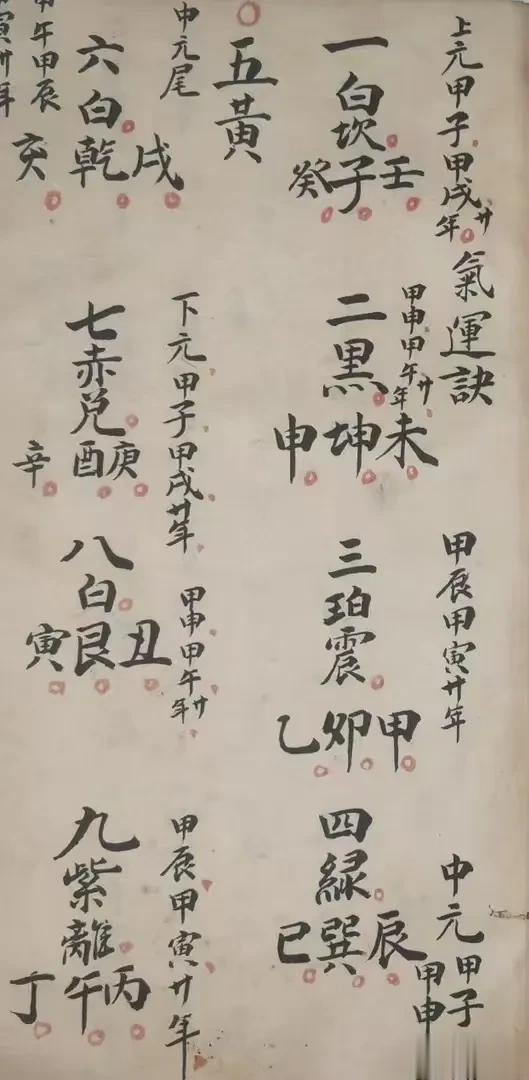 上元甲子甲戌廿年
氣運訣
一白坎
壬子癸
甲申甲午廿年
二黑
未坤申
甲辰甲寅廿年
三珀震
甲卯乙
中元甲子
甲申
四綠
辰巽巳
五黃
中元尾
午甲辰
寅廿年
六白乾
戌亥
下元甲子甲戌廿年
七赤兌
庚酉辛
甲申甲午廿年
八白
丑艮寅
甲辰甲寅廿年
九紫離
丙午丁